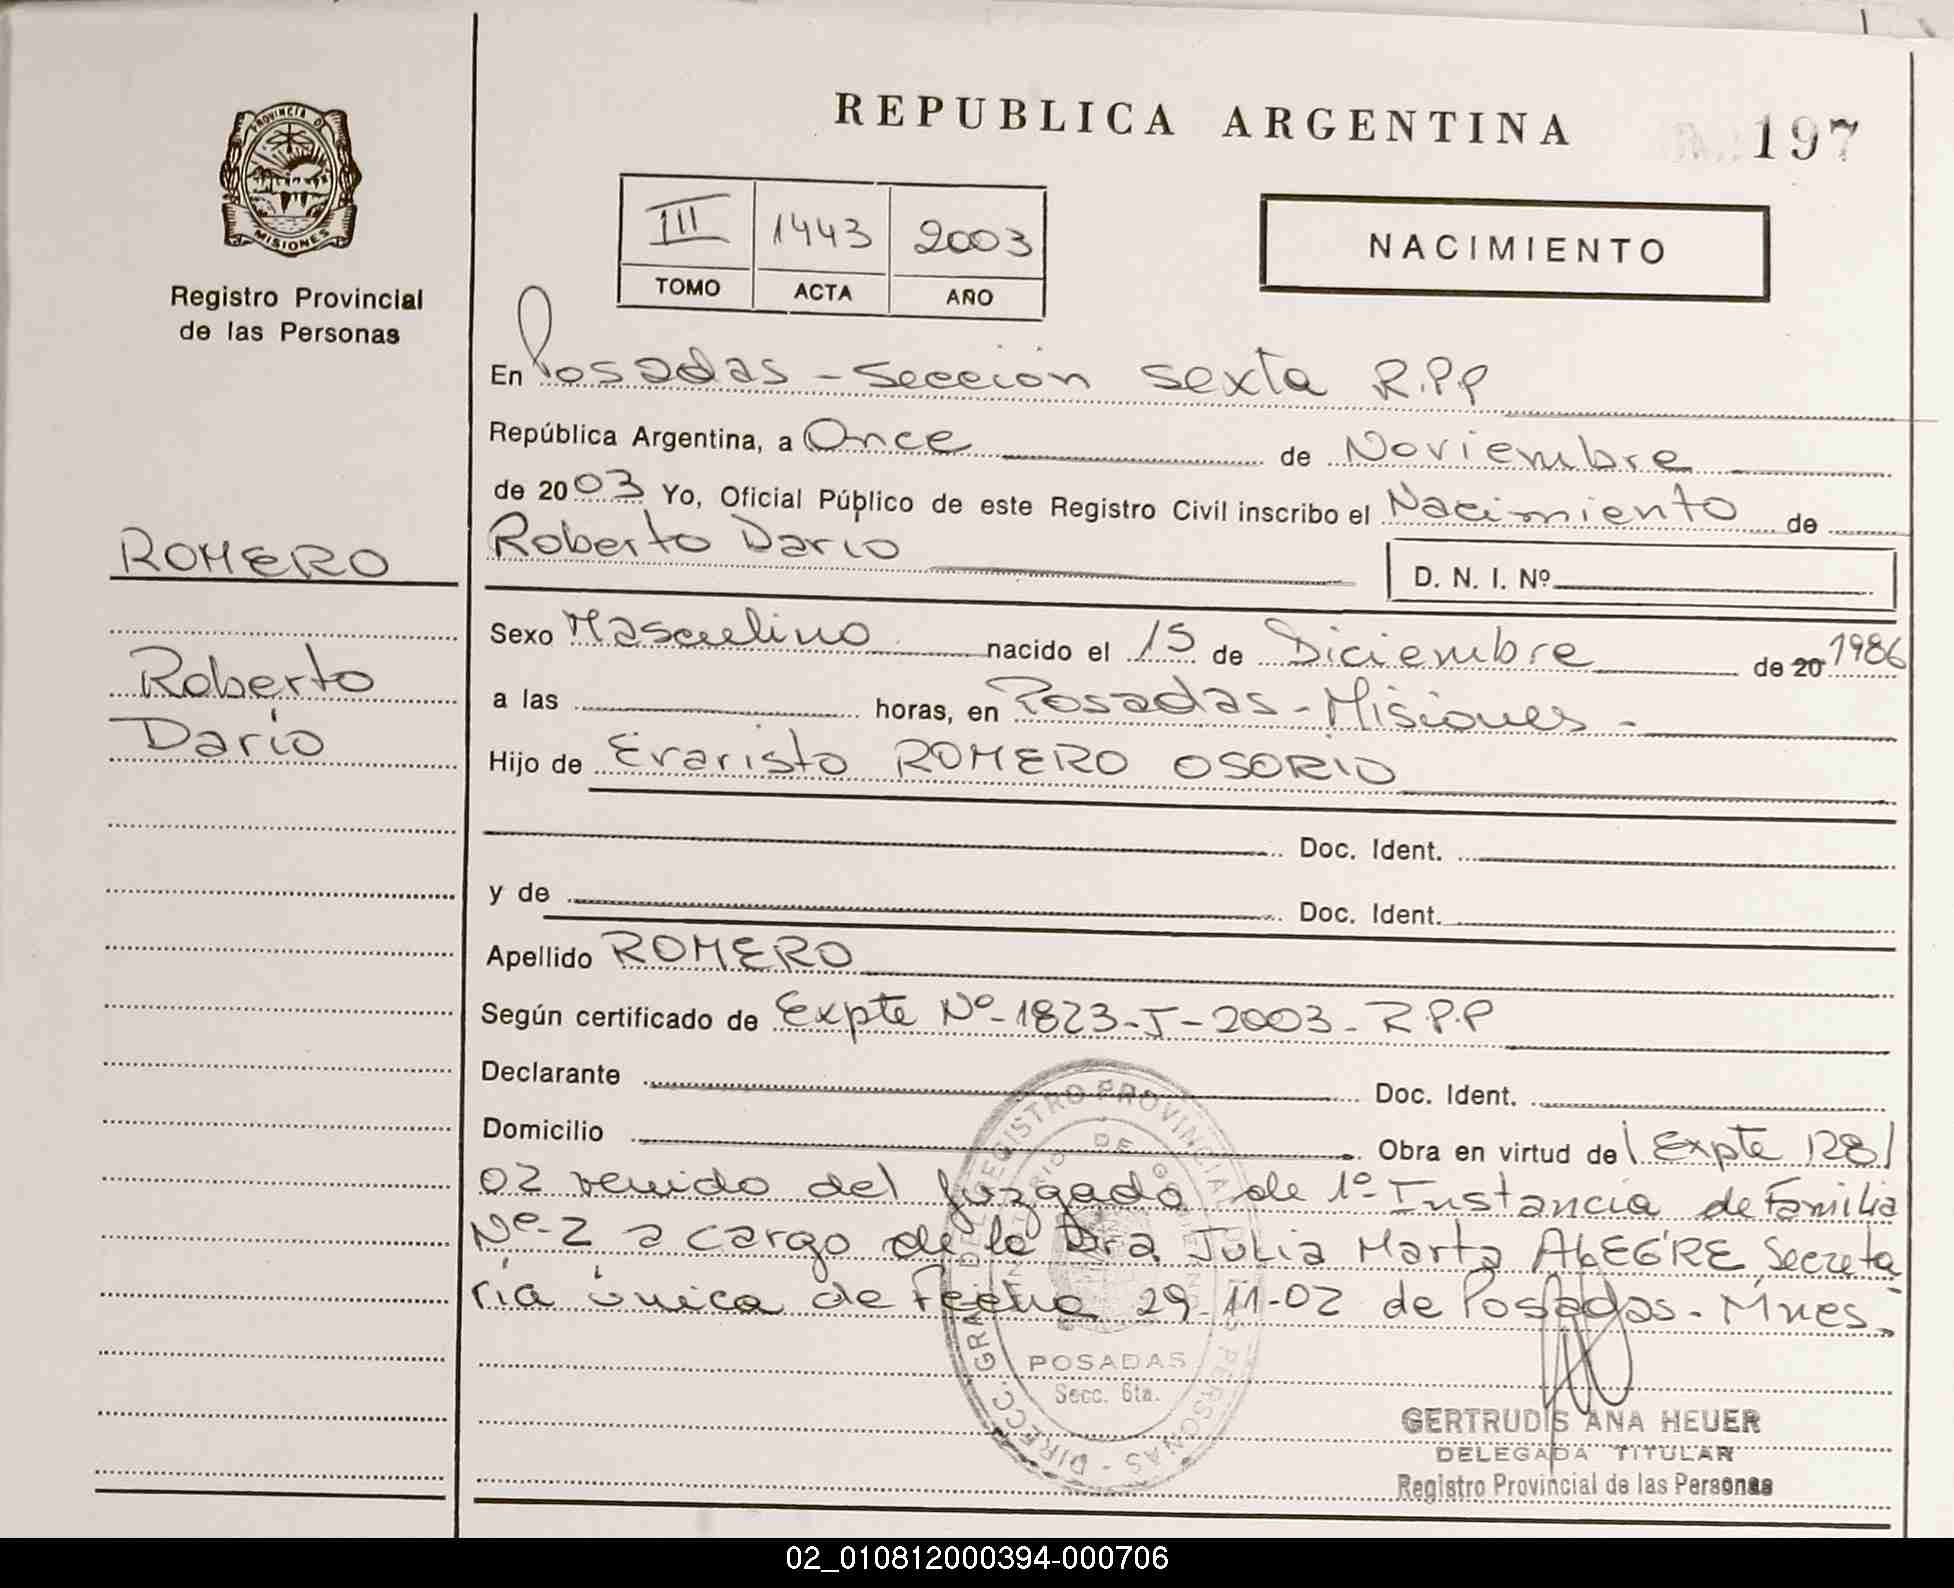 REPUBLICA ARGENTINA
197
PROVINCIA DE
MISIONES
Registro Provincial
de las Personas
III 1443 2003
TOMO ACTA AÑO
NACIMIENTO
En Posadas - Sección Sexta R.P.P
República Argentina, a Once de Noviembre
de 2003 Yo, Oficial Público de este Registro Civil inscribo el Nacimiento de
Roberto Dario
D. N. I. Nº
ROMERO
Roberto
Darío
Sexo Masculino nacido el 15 de Diciembre de 20 1986
a las horas, en Posadas - Misiones -
Hijo de Evaristo ROMERO OSORIO
Doc. Ident.
y de Doc. Ident.
Apellido ROMERO
Según certificado de Expte Nº-1823-J-2003-R.P.P
Declarante Doc. Ident.
Domicilio Obra en virtud del Expte 128/
02 venido del Juzgado de 1º Instancia de Familia
Nº-2 a cargo de la Dra Julia Marta ALEGRE Secreta
ria única de Fecha 29-11-02 de Posadas - Mnes.
DIRECC. GRAL. DEL REGISTRO PROVINCIAL DE LAS PERSONAS
POSADAS
Secc. 6ta.
GERTRUDIS ANA HEUER
DELEGADA TITULAR
Registro Provincial de las Personas
02_010812000394-000706